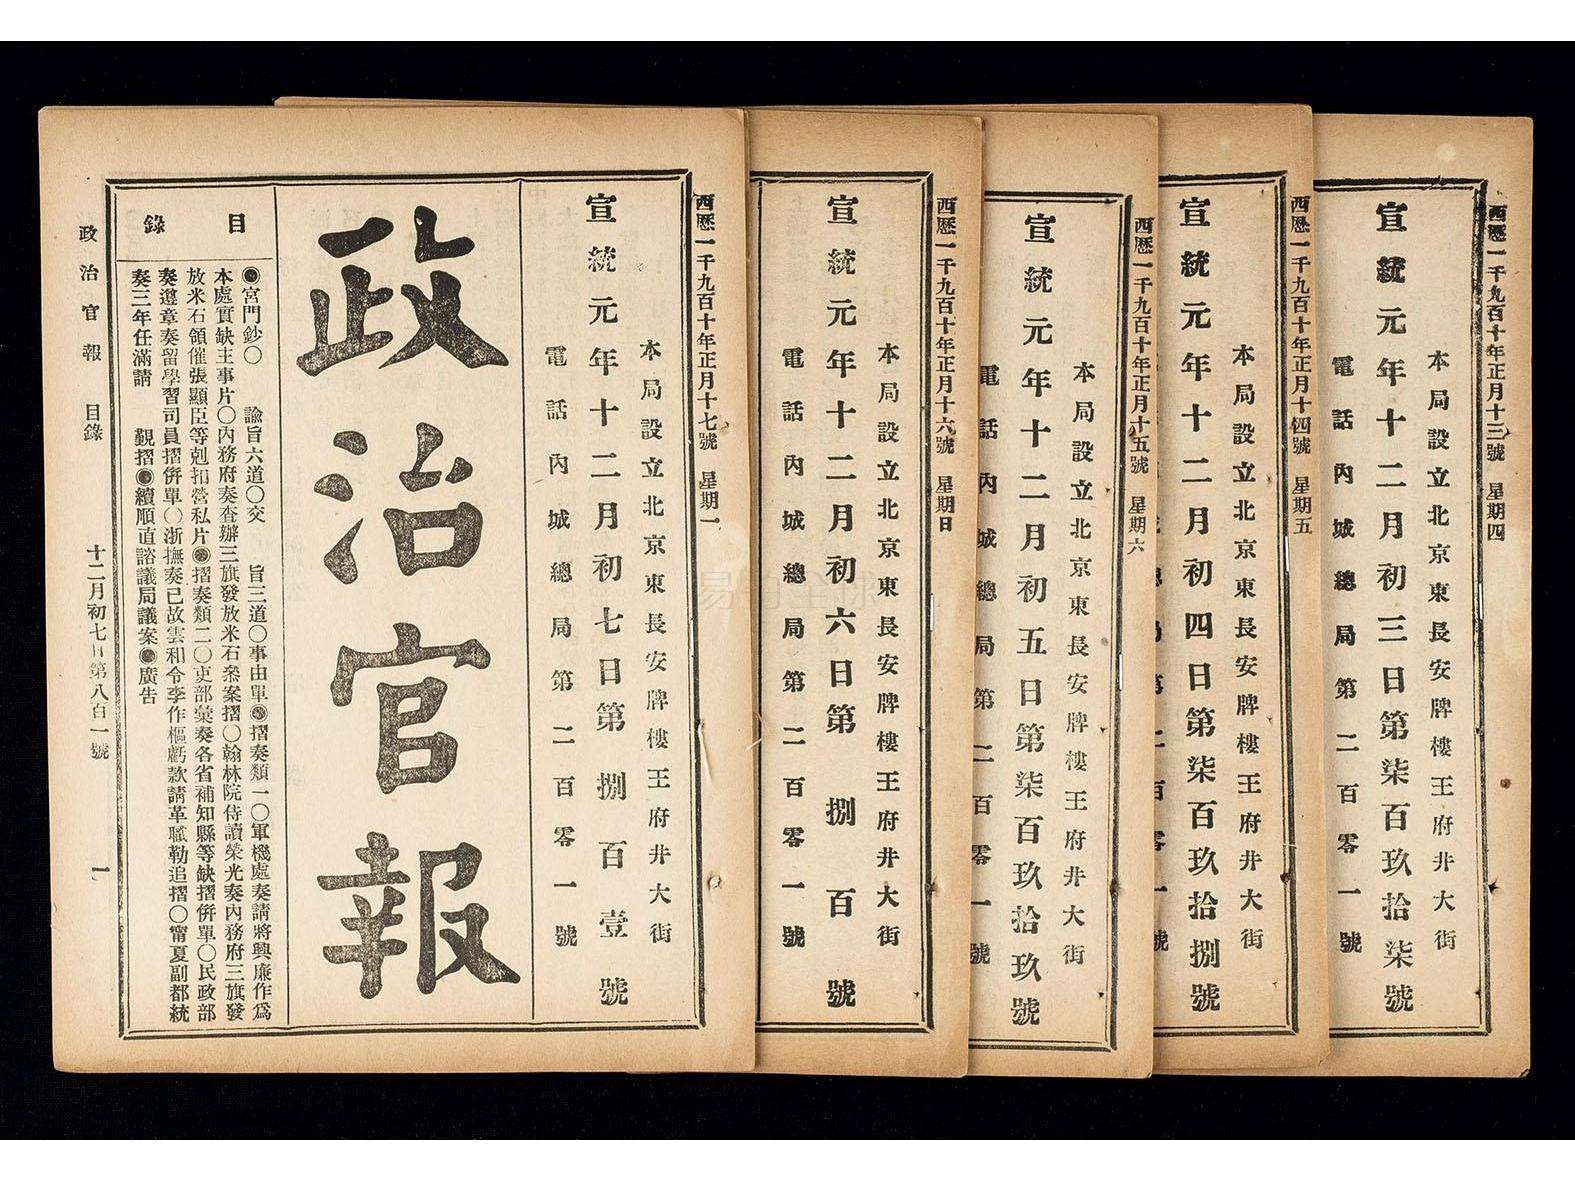 西歷一千九百十年正月十三號 星期四
本局設立北京東長安牌樓王府井大街
宣統元年十二月初三日第柒百玖拾柒號
電話內城總局第二百零一號
西歷一千九百十年正月十四號 星期五
本局設立北京東長安牌樓王府井大街
宣統元年十二月初四日第柒百玖拾捌號
西歷一千九百十年正月十五號 星期六
本局設立北京東長安牌樓王府井大街
宣統元年十二月初五日第柒百玖拾玖號
電話內城總局第二百零一號
西歷一千九百十年正月十六號 星期日
本局設立北京東長安牌樓王府井大街
宣統元年十二月初六日第捌百號
電話內城總局第二百零一號
西歷一千九百十年正月十七號 星期一
本局設立北京東長安牌樓王府井大街
宣統元年十二月初七日第捌百壹號
電話內城總局第二百零一號
政治官報
目錄
●宮門鈔○ 諭旨六道○交 旨三道○事由單●摺奏類一○軍機處奏請將興廉作爲
本處實缺主事片○內務府奏查辦三旗發放米石叅案摺○翰林院侍讀榮光奏內務府三旗發
放米石領催張顯臣等剋扣營私片●摺奏類二○吏部彙奏各省補知縣等缺摺併單○民政部
奏遵章奏留學習司員摺併單○浙撫奏已故雲和令李作樞虧款請革職勒追摺○甯夏副都統
奏三年任滿請 覲摺●續順直諮議局議案●廣告
政治官報 目錄 十二月初七日第八百一號 一